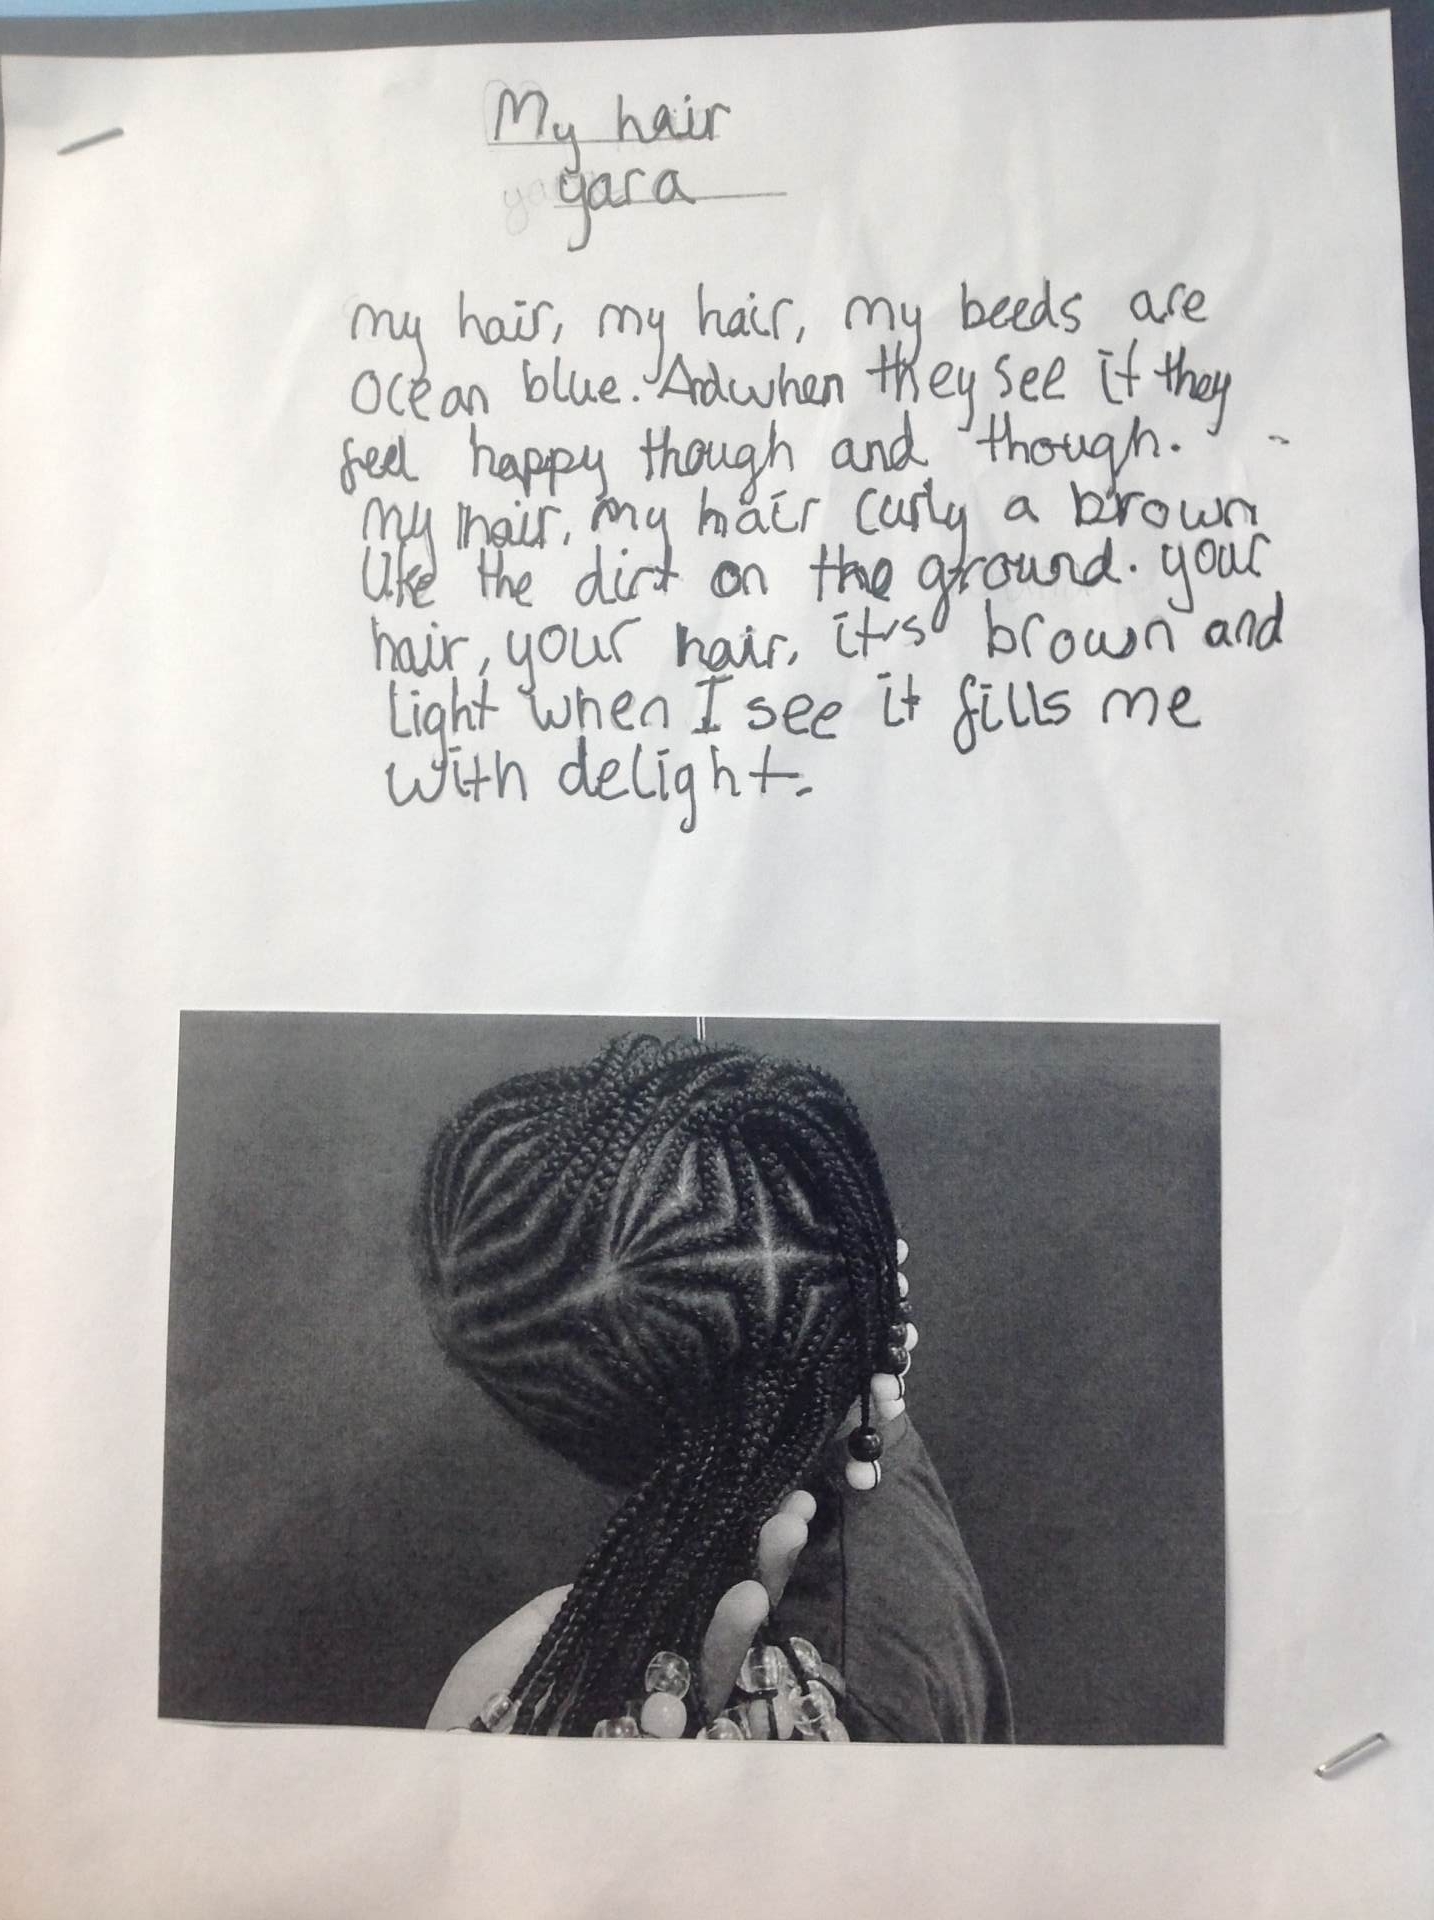 My hair
yara
my hair, my hair, my beeds are
ocean blue. And when they see it they
feel happy though and though.
My hair, my hair curly a brown
like the dirt on the ground. your
hair, your hair, it's brown and
light when I see it fills me
with delight.